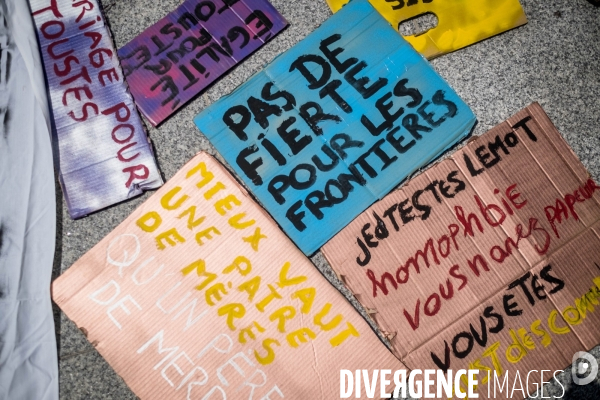 RIAGE POUR
TOUSTES
ÉGALITÉ
POUR
TOUSTES
PAS DE
FIERTÉ
POUR LES
FRONTIÈRES
MIEUX VAUT
UNE PAIRE
DE MÈRES
QU'UN PÈRE
DE MERD
JE DÉTESTE LE MOT
homophobie
VOUS N'AVEZ PAS PEUR
VOUS ÊTES
DIVERGENCE IMAGES